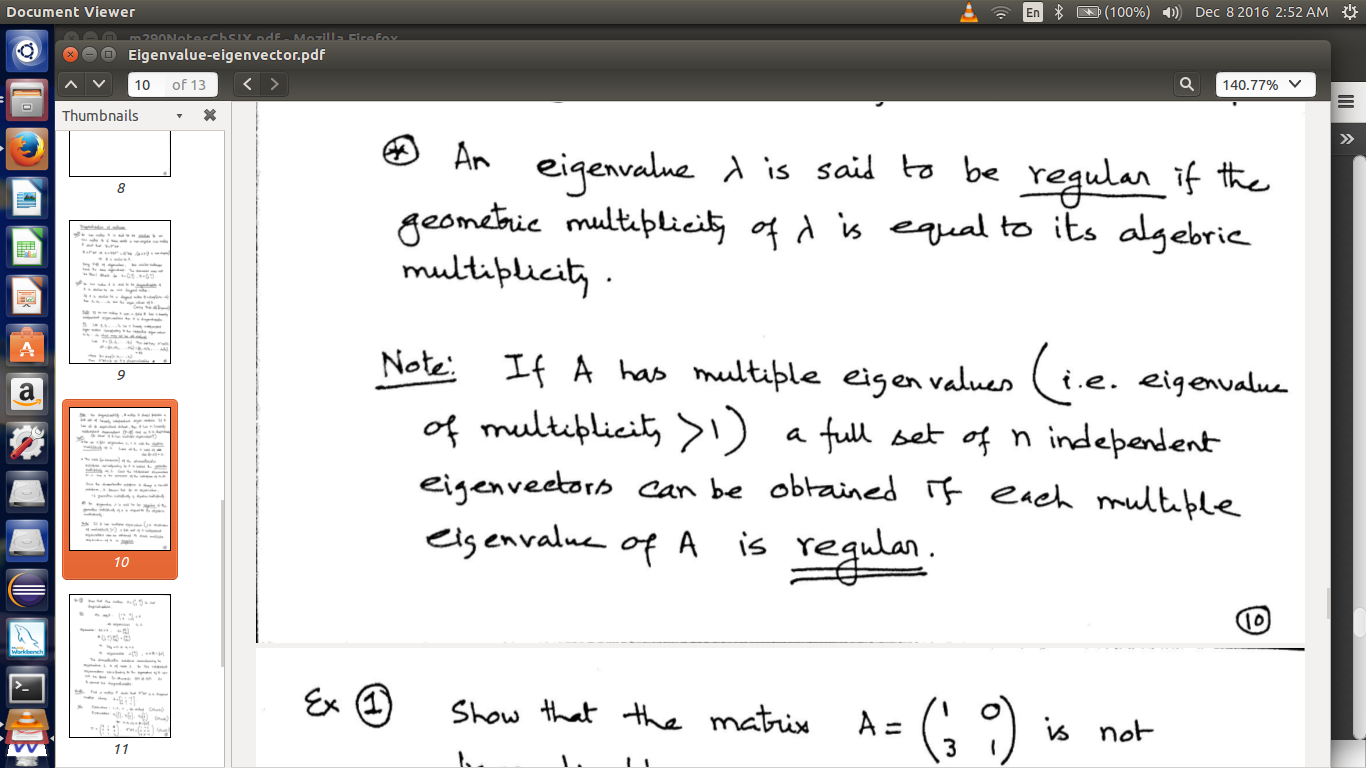 Document Viewer
En
(100%)
Dec 8 2016 2:52 AM
m290NotesChSIX.pdf - Mozilla Firefox
Eigenvalue-eigenvector.pdf
10 of 13
140.77%
Thumbnails
8
9
10
11
* An eigenvalue λ is said to be regular if the
geometric multiplicity of λ is equal to its algebric
multiplicity.
Note: If A has multiple eigen values (i.e. eigenvalue
of multiplicity >1) a full set of n independent
eigenvectors can be obtained if each multiple
eigenvalue of A is regular.
10
Ex 1 Show that the matrix A = (1 0
3 1) is not